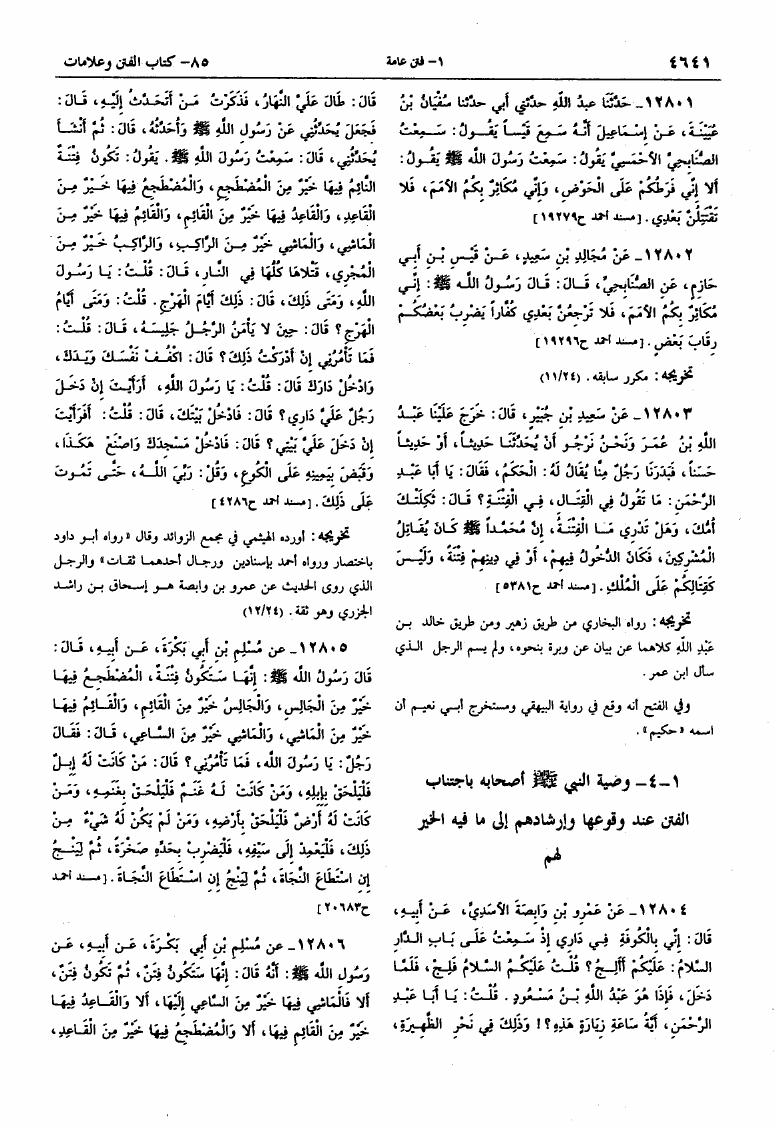 ٤٦٤١
١- فتن عامة
٨٥- كتاب الفتن وعلامات
١٢٨٠١- حَدَّثَنَا عبدُ اللَّهِ حدثني أبي حدثنا سُفْيَانُ بْنُ
عُيَيْنَةَ، عَنْ إِسْمَاعِيلَ أَنَّهُ سَمِعَ قَيْساً يَقُولُ: سَمِعْتُ
الصُّنَابِحِيَّ الأَحْمَسِيَّ يَقُولُ: سَمِعْتُ رَسُولَ اللَّهِ ﷺ يَقُولُ:
أَلا إِنِّي فَرَطُكُمْ عَلَى الْحَوْضِ، وَإِنِّي مُكَاثِرٌ بِكُمُ الأُمَمَ، فَلا
تَقْتَتِلُنَّ بَعْدِي. [مسند أحمد ح١٩٢٧٩]
١٢٨٠٢- عَنْ مُجَالِدِ بْنِ سَعِيدٍ، عَنْ قَيْسِ بْنِ أَبِي
حَازِمٍ، عَنِ الصُّنَابِحِيِّ، قَالَ: قَالَ رَسُولُ اللَّهِ ﷺ: إِنِّي
مُكَاثِرٌ بِكُمُ الأُمَمَ، فَلا تَرْجِعُنَّ بَعْدِي كُفَّاراً يَضْرِبُ بَعْضُكُمْ
رِقَابَ بَعْضٍ. [مسند أحمد ح١٩٢٩٦]
تخريجه: مكرر سابقه. (١١/٢٤)
١٢٨٠٣- عَنْ سَعِيدِ بْنِ جُبَيْرٍ، قَالَ: خَرَجَ عَلَيْنَا عَبْدُ
اللَّهِ بْنُ عُمَرَ وَنَحْنُ نَرْجُو أَنْ يُحَدِّثَنَا حَدِيثاً، أَوْ حَدِيثاً
حَسَناً، فَبَدَرَنَا رَجُلٌ مِنَّا يُقَالُ لَهُ: الْحَكَمُ، فَقَالَ: يَا أَبَا عَبْدِ
الرَّحْمَنِ: مَا تَقُولُ فِي الْقِتَالِ، فِي الْفِتْنَةِ؟ قَالَ: ثَكِلَتْكَ
أُمُّكَ، وَهَلْ تَدْرِي مَا الْفِتْنَةُ، إِنَّ مُحَمَّداً ﷺ كَانَ يُقَاتِلُ
الْمُشْرِكِينَ، فَكَانَ الدُّخُولُ فِيهِمْ، أَوْ فِي دِينِهِمْ فِتْنَةً، وَلَيْسَ
كَقِتَالِكُمْ عَلَى الْمُلْكِ. [مسند أحمد ح٥٣٨١]
تخريجه: رواه البخاري من طريق زهير ومن طريق خالد بن
عَبْدِ اللَّهِ كلاهما عن بيان عن وبرة بنحوه، ولم يسم الرجل الذي
سأل ابن عمر.
وفي الفتح أنه وقع في رواية البيهقي ومستخرج أبي نعيم أن
اسمه «حكيم».
١-٤- وصية النبي ﷺ أصحابه باجتناب
الفتن عند وقوعها وإرشادهم إلى ما فيه الخير
لهم
١٢٨٠٤- عَنْ عَمْرِو بْنِ وَابِصَةَ الأَسَدِيِّ، عَنْ أَبِيهِ،
قَالَ: إِنِّي بِالْكُوفَةِ فِي دَارِي إِذْ سَمِعْتُ عَلَى بَابِ الدَّارِ
السَّلامُ: عَلَيْكُمْ أَأَلِجُ؟ قُلْتُ عَلَيْكُمُ السَّلامُ فَلِجْ، فَلَمَّا
دَخَلَ، فَإِذَا هُوَ عَبْدُ اللَّهِ بْنُ مَسْعُودٍ. قُلْتُ: يَا أَبَا عَبْدِ
الرَّحْمَنِ، أَيَّةُ سَاعَةِ زِيَارَةٍ هَذِهِ؟! وَذَلِكَ فِي نَحْرِ الظَّهِيرَةِ،
قَالَ: طَالَ عَلَيَّ النَّهَارُ، فَذَكَرْتُ مَنْ أَتَحَدَّثُ إِلَيْهِ، قَالَ:
فَجَعَلَ يُحَدِّثُنِي عَنْ رَسُولِ اللَّهِ ﷺ وَأُحَدِّثُهُ، قَالَ: ثُمَّ أَنْشَأَ
يُحَدِّثُنِي، قَالَ: سَمِعْتُ رَسُولَ اللَّهِ ﷺ. يَقُولُ: تَكُونُ فِتْنَةٌ
النَّائِمُ فِيهَا خَيْرٌ مِنَ الْمُضْطَجِعِ، وَالْمُضْطَجِعُ فِيهَا خَيْرٌ مِنَ
الْقَاعِدِ، وَالْقَاعِدُ فِيهَا خَيْرٌ مِنَ الْقَائِمِ، وَالْقَائِمُ فِيهَا خَيْرٌ مِنَ
الْمَاشِي، وَالْمَاشِي خَيْرٌ مِنَ الرَّاكِبِ، وَالرَّاكِبُ خَيْرٌ مِنَ
الْمُجْرِي، قَتْلاهَا كُلُّهَا فِي النَّارِ، قَالَ: قُلْتُ: يَا رَسُولَ
اللَّهِ، وَمَتَى ذَلِكَ، قَالَ: ذَلِكَ أَيَّامَ الْهَرْجِ. قُلْتُ: وَمَتَى أَيَّامُ
الْهَرْجِ؟ قَالَ: حِينَ لا يَأْمَنُ الرَّجُلُ جَلِيسَهُ، قَالَ: قُلْتُ:
فَمَا تَأْمُرُنِي إِنْ أَدْرَكْتُ ذَلِكَ؟ قَالَ: اكْفُفْ نَفْسَكَ وَيَدَكَ،
وَادْخُلْ دَارَكَ قَالَ: قُلْتُ: يَا رَسُولَ اللَّهِ، أَرَأَيْتَ إِنْ دَخَلَ
رَجُلٌ عَلَيَّ دَارِي؟ قَالَ: فَادْخُلْ بَيْتَكَ، قَالَ: قُلْتُ: أَفَرَأَيْتَ
إِنْ دَخَلَ عَلَيَّ بَيْتِي؟ قَالَ: فَادْخُلْ مَسْجِدَكَ وَاصْنَعْ هَكَذَا،
وَقَبَضَ بِيَمِينِهِ عَلَى الْكُوعِ، وَقُلْ: رَبِّيَ اللَّهُ، حَتَّى تَمُوتَ
عَلَى ذَلِكَ. [مسند أحمد ح٤٢٨٦]
تخريجه: أورده الهيثمي في مجمع الزوائد وقال «رواه أبو داود
باختصار ورواه أحمد بإسنادين ورجال أحدهما ثقات» والرجل
الذي روى الحديث عن عمرو بن وابصة هو إسحاق بن راشد
الجزري وهو ثقة. (١٢/٢٤)
١٢٨٠٥- عن مُسْلِمِ بْنِ أَبِي بَكْرَةَ، عَنْ أَبِيهِ، قَالَ:
قَالَ رَسُولُ اللَّهِ ﷺ: إِنَّهَا سَتَكُونُ فِتْنَةٌ، الْمُضْطَجِعُ فِيهَا
خَيْرٌ مِنَ الْجَالِسِ، وَالْجَالِسُ خَيْرٌ مِنَ الْقَائِمِ، وَالْقَائِمُ فِيهَا
خَيْرٌ مِنَ الْمَاشِي، وَالْمَاشِي خَيْرٌ مِنَ السَّاعِي، قَالَ: فَقَالَ
رَجُلٌ: يَا رَسُولَ اللَّهِ، فَمَا تَأْمُرُنِي؟ قَالَ: مَنْ كَانَتْ لَهُ إِبِلٌ
فَلْيَلْحَقْ بِإِبِلِهِ، وَمَنْ كَانَتْ لَهُ غَنَمٌ فَلْيَلْحَقْ بِغَنَمِهِ، وَمَنْ
كَانَتْ لَهُ أَرْضٌ فَلْيَلْحَقْ بِأَرْضِهِ، وَمَنْ لَمْ يَكُنْ لَهُ شَيْءٌ مِنْ
ذَلِكَ، فَلْيَعْمِدْ إِلَى سَيْفِهِ، فَلْيَضْرِبْ بِحَدِّهِ صَخْرَةً، ثُمَّ لِيَنْجُ
إِنِ اسْتَطَاعَ النَّجَاةَ، ثُمَّ لِيَنْجُ إِنِ اسْتَطَاعَ النَّجَاةَ. [مسند أحمد
ح٢٠٦٨٣]
١٢٨٠٦- عن مُسْلِمِ بْنِ أَبِي بَكْرَةَ، عَنْ أَبِيهِ، عَنْ
رَسُولِ اللَّهِ ﷺ: أَنَّهُ قَالَ: إِنَّهَا سَتَكُونُ فِتَنٌ، ثُمَّ تَكُونُ فِتَنٌ،
أَلا فَالْمَاشِي فِيهَا خَيْرٌ مِنَ السَّاعِي إِلَيْهَا، أَلا وَالْقَاعِدُ فِيهَا
خَيْرٌ مِنَ الْقَائِمِ فِيهَا، أَلا وَالْمُضْطَجِعُ فِيهَا خَيْرٌ مِنَ الْقَاعِدِ،